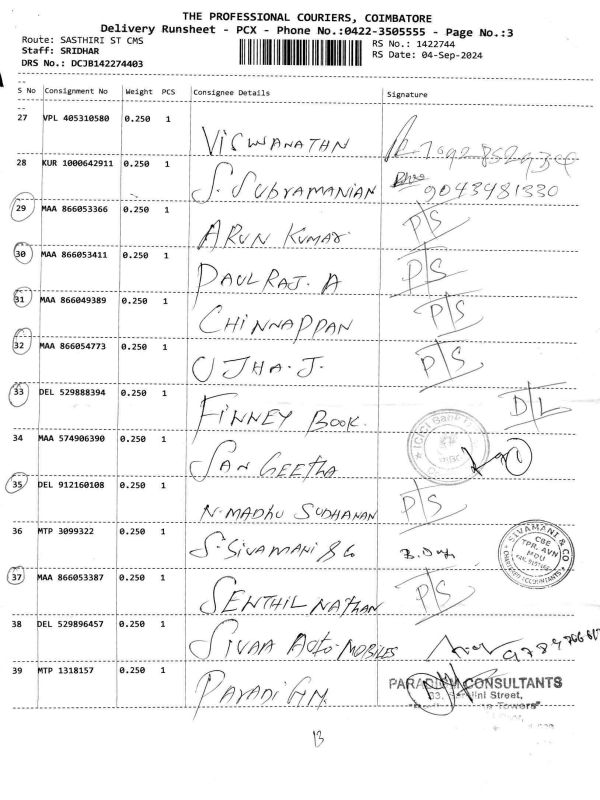 THE PROFESSIONAL COURIERS, COIMBATORE
Delivery Runsheet - PCX - Phone No.:0422-3505555 - Page No.:3
Route: SASTHIRI ST CMS
RS No.: 1422744
Staff: SRIDHAR
RS Date: 04-Sep-2024
DRS No.: DCJB142274403
S No Consignment No Weight PCS Consignee Details Signature
27 VPL 405310580 0.250 1
VISWANATHN
28 KUR 1000642911 0.250 1
S. SUBRAMANIAN 9043481330
29 MAA 866053366 0.250 1
ARUN KUMAR P/S
30 MAA 866053411 0.250 1
PAULRAJ. A P/S
31 MAA 866049389 0.250 1
CHINNAPPAN P/S
32 MAA 866054773 0.250 1
UJHA. J. P/S
33 DEL 529888394 0.250 1
FINNEY BOOK. D/L
34 MAA 574906390 0.250 1
SANGEETHA ICICI Bank
35 DEL 912160108 0.250 1
N. MADHU SUDHANAN P/S
36 MTP 3099322 0.250 1
S. SIVAMANI & Co
SIVAMANI & CO
CBE
TPR. AVN
MDU
CHARTERED ACCOUNTANTS
37 MAA 866053387 0.250 1
SENTHIL NATHAN P/S
38 DEL 529896457 0.250 1
SIVAA AUTO-MOBILES
39 MTP 1318157 0.250 1
PARADIGM
PARADIGM CONSULTANTS
Street,
Towers"
13